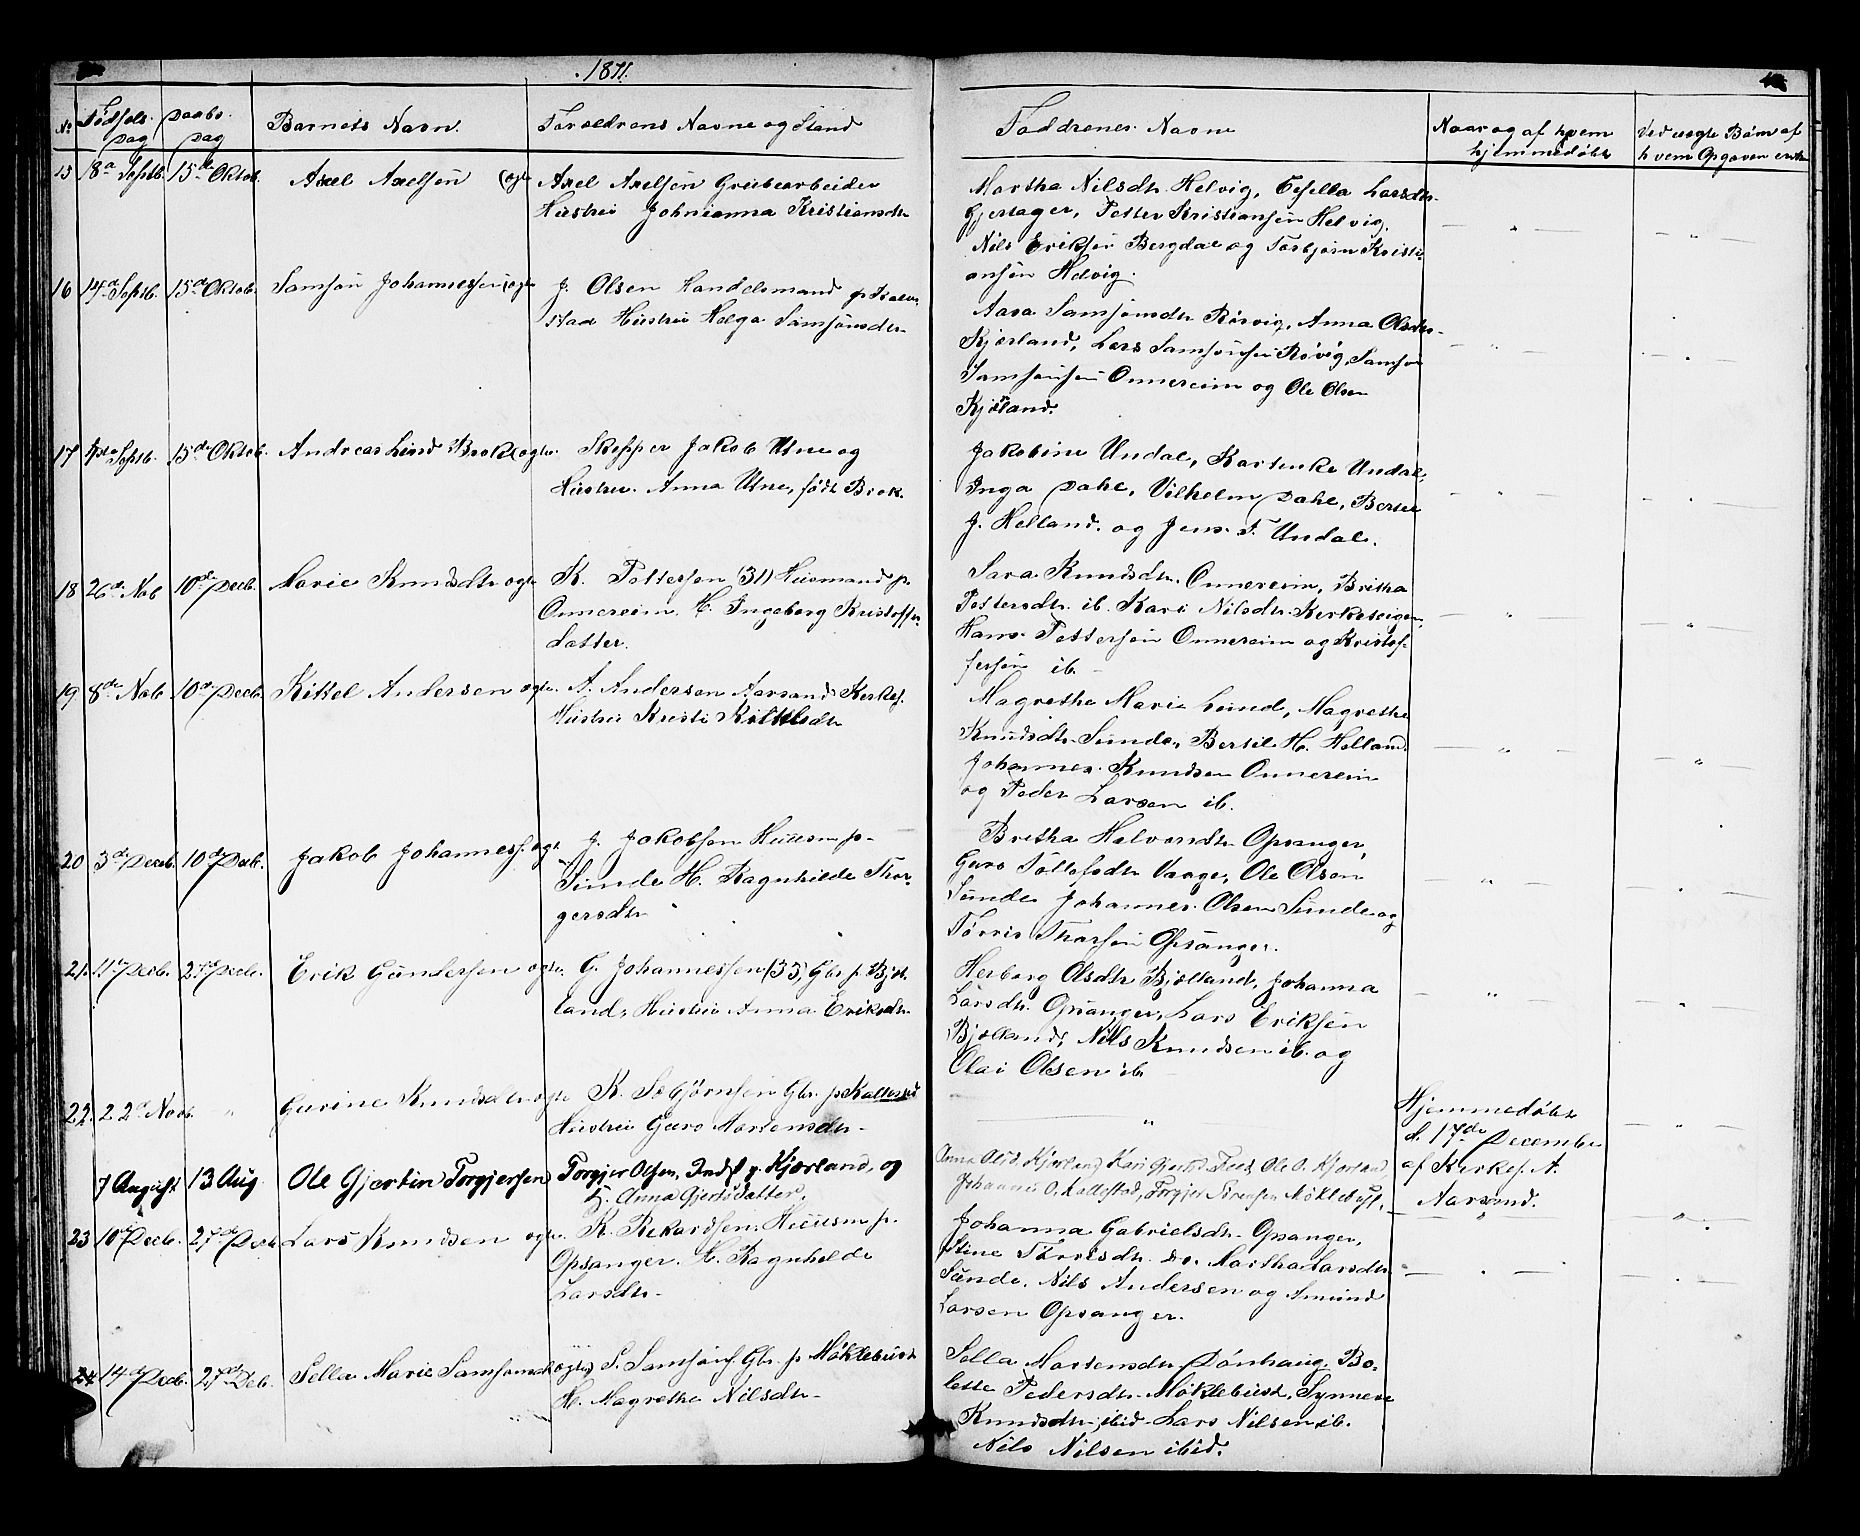 1871.
No Fødsels- Dag Daabs- Dag Barnets Navn. Forældrens Navne og Stand Faddrenes Navne Naar og af hvem hjemmedøbt Ved uægte Børn af hvem Opgaven
15 8de Septb. 15de Oktob. Axel Axelsen (ægte Axel Axelsen Grubearbeider
Hustru Johnianna Kristiansdtr
Martha Nilsdtr. Helvig, Larsdtr.
Gjertager, Petter Kristiansen Helvig,
Nils Eriksen Bergdal og Torbjørn Kristi-
ansen Helvig.
16 14de Septb. 15de Oktob. Samson Johannessen (ægte J. Olsen Handelsmand p
stad Hustru Helga Samsonsdtr
Aasa Samsonsdtr Røsvig, Anna Olsdtr
Kjærland, Lars Samsonsen Røvig, Samson
Samsonsen Onnereim og Ole Olsen
Kjærland.
17 Septb. 15de Oktob. Andreas Lind Brok (ægte Skipper Jakob Utne og
Hustru. Anna Utne, født Brok.
Jakobine Undal, Karenke Undal,
Inga Dahl, Vilhelm Dahl, Bertel
J. Helland. og Jens T. Undal.
18 26de Nob 10de Decb. Marie Knudsdtr ægte K. Pettersen (31) Huusmand p.
Onnereim H. Ingeborg Kristoffer-
datter.
Sara Knudsdtr. Onnereim, Britha
Pettersdtr. ib. Kari Nilsdtr. Kerketeigen,
Hans Pettersen Onnereim og Kristof-
fersen ib.
19 8de Nob 10de Decb. Kittel Andersen ægte A. Andersen Aarsand Kerkes.
Hustru Kristi Kittelsdtr
Magretha Marie Lund, Magretha
Knudsdtr Sunde, Bertil H. Helland
Johannes Knudsen Onnereim
og Peder Larsen ib.
20 3de Decb. 10de Decb. Jakob Johanness. ægte J. Jakobsen Huusm p-
Sunde H. Ragnhilde Thor-
gersdtr
Britha Halvorsdtr Opsanger,
Guro Tollefsdtr Vaage, Ole Olsen
Sunde Johannes Olsen Sunde og
Tørris Thorsen Opsanger.
21. 11de Decb. 27de Decb. Erik Gundersen ægte. G. Johannessen (35) Gbr. p. Bjøl-
land, Hustru Anna Eriksdtr
Herborg Olsdtr Bjølland, Johanna
Larsdtr. Opsanger, Lars Eriksen
Bjølland, Nils Knudsen ib. og
Olai Olsen ib.
22. 22de Novb " Gurine Knudsdtr ægte K. Gbr. p Kallestad
Hustru Guro Mortensdtr-
"
Hjemmedøbt
d. 17de December
af Kirkes. A.
Aarsand.
7 August 13 Aug. Ole Gjertin Torgjersen Torgjer Olsen, Inds p. Kjærland, og
H. Anna Gjertsdatter.
Anna Olsd. Kjærland, Kari Gjertsd. Ole O. Kjærland
Johannes O. Kallestad, Torgjer Sørensen Møklebust.
23 10de Decb. 27de Decb Lars Knudsen ægte. K. Rekardsen, Huusm p.
Opsanger. H. Ragnhilde
Larsdtr-
Johanna Gabrielsdtr. Opsanger,
Stine Tørrisdtr. do. Martha Larsdtr
Sunde, Nils Andersen og Amund
Larsen Opsanger.
24 14de Decb. 27de Deb. Sella Marie Samsonsdtr ægte S. Samsons. Gbr. p Møklebust
H. Magretha Nilsdtr-
Sella Mortensdtr Dønhaug, Bo-
lette Pedersdtr. Møklebust, Synneve
Knudsdtr, ibid. Lars Nilsen ib.
Nils Nilsen ibid.